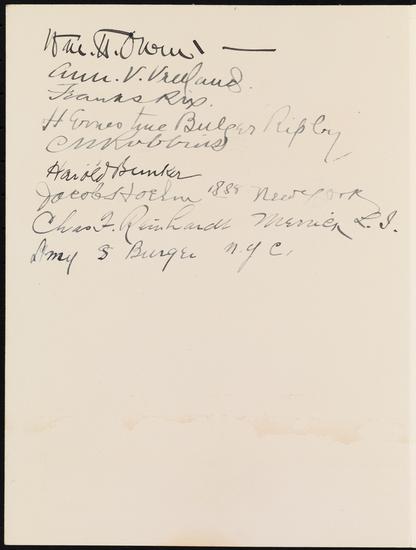 Wm. H. Owen
Ann. V. Vreeland.
Franks Rix.
H Ernestine Bulger Ripley
C M Robbins
Harold Bunker
Jacob S Hoehn 1888 New York
Chas F. Reinhardt Merrick L. I.
Amy S Burger N.Y.C.